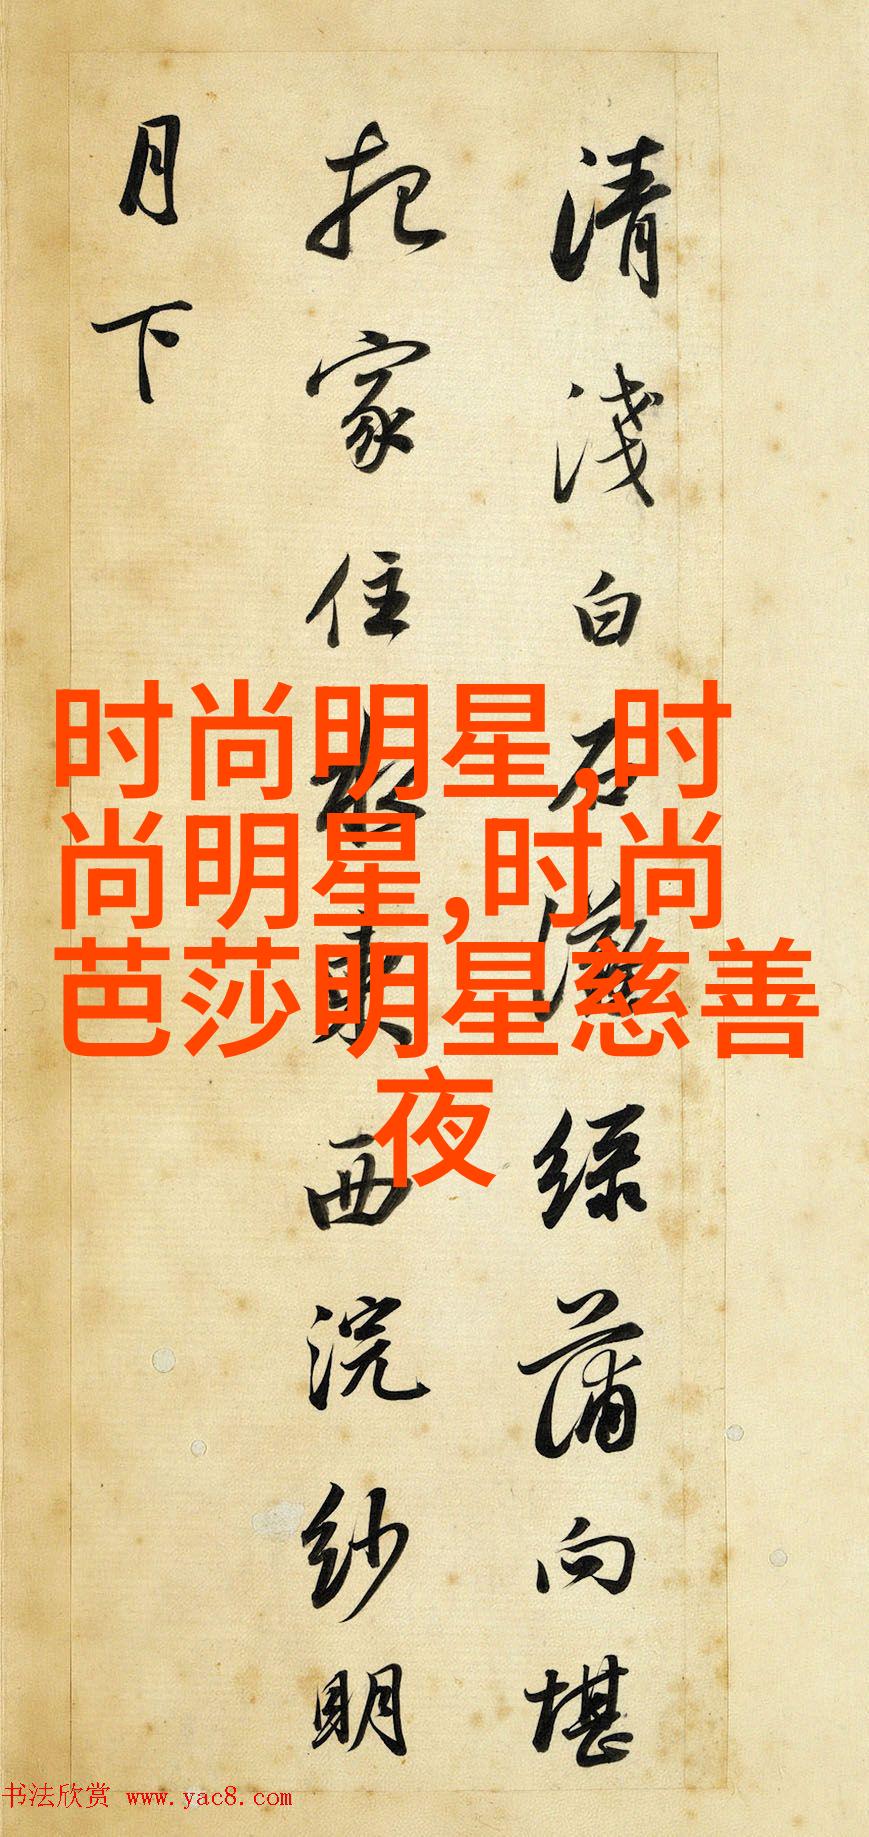 清淺白石灘綠蒲向堪
把家住水東西浣紗明
月下
时尚明星,时
尚明星,时尚
芭莎明星慈善
夜
书法欣赏 www.yac8.com